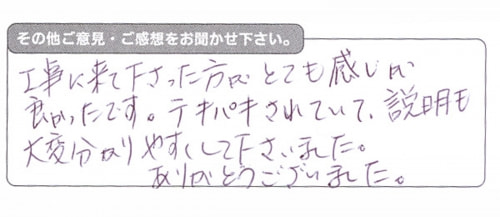 その他ご意見・ご感想をお聞かせ下さい。
工事に来て下さった方が とても感じが
良かったです。テキパキされていて、説明も
大変分かりやすくして下さいました。
ありがとうございました。